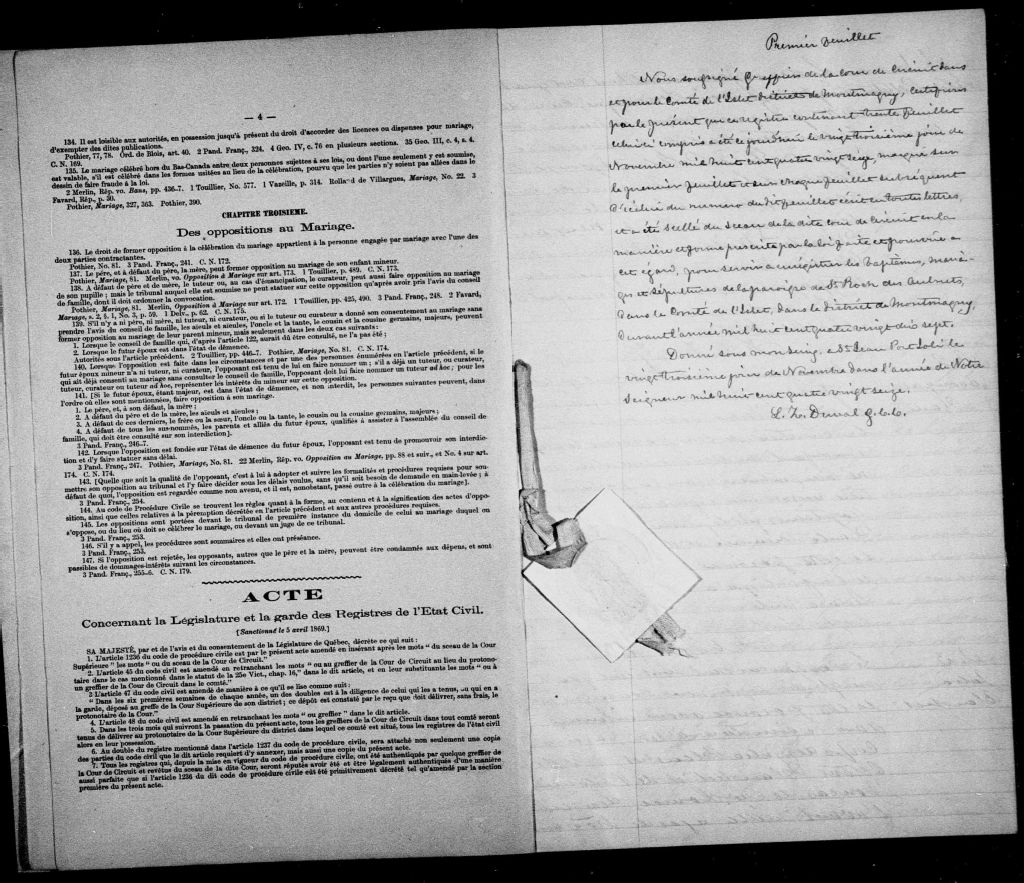 — 4 —
134. Il est loisible aux autorités, en possession jusqu'à présent du droit d'accorder des licences ou dispenses pour mariage,
d'exempter des dites publications.
Pothier, 77, 78. Ord. de Blois, art. 40. 2 Pand. Franç., 324. 4 Geo. IV, c. 76 en plusieurs sections. 35 Geo. III, c. 4, s. 4.
C. N. 169.
135. Le mariage célébré hors du Bas-Canada entre deux personnes sujettes à ses lois, ou dont l'une seulement y est soumise,
est valable, s'il est célébré dans les formes usitées au lieu de la célébration, pourvu que les parties n'y soient pas allées dans le
dessin de faire fraude à la loi.
2 Merlin, Rép. vo. Bans, pp. 436-7. 1 Toullier, No. 577. 1 Vazeille, p. 314. Rolland de Villargues, Mariage, No. 22. 3
Favard, Rép., p. 30.
Pothier, Mariage, 327, 363. Pothier, 390.
CHAPITRE TROISIEME.
Des oppositions au Mariage.
136. Le droit de former opposition à la célébration du mariage appartient à la personne engagée par mariage avec l'une des
deux parties contractantes.
Pothier, No. 81. 3 Pand. Franç., 241. C. N. 172.
137. Le père, et à défaut du père, la mère, peut former opposition au mariage de son enfant mineur.
Pothier, Mariage, 81. Merlin, vo. Opposition à Mariage sur art. 173. 1 Toullier, p. 489. C. N. 173.
138. A défaut de père et de mère, le tuteur ou, au cas d'émancipation, le curateur, peut aussi faire opposition au mariage
de son pupille; mais le tribunal auquel elle est soumise ne peut statuer sur cette opposition qu'après avoir pris l'avis du conseil
de famille, dont il doit ordonner la convocation.
Pothier, Mariage, 81. Merlin Opposition à Mariage sur art. 172. 1 Toullier, pp. 425, 490. 3 Pand. Franç., 248. 2 Favard,
Mariage, s. 2, § 1, No. 3, p. 59. 1 Delv., p. 62. C. N. 175.
139. S'il n'y a ni père, ni mère, ni tuteur, ni curateur, ou si le tuteur ou curateur a donné son consentement au mariage sans
prendre l'avis du conseil de famille, les aïeuls et aïeules, l'oncle et la tante, le cousin et la cousine germains, majeurs, peuvent
former opposition au mariage de leur parent mineur, mais seulement dans les deux cas suivants:
1. Lorsque le conseil de famille qui, d'après l'article 122, aurait dû être consulté, ne l'a pas été;
2. Lorsque le futur époux est dans l'état de démence.
Autorités sous l'article précédent. 2 Toullier, pp. 446-7. Pothier, Mariage, No. 81. C. N. 174.
140. Lorsque l'opposition est faite dans les circonstances et par une des personnes énumérées en l'article précédent, si le
futur époux mineur n'a ni tuteur, ni curateur, l'opposant est tenu de lui en faire nommer un; s'il a déjà un tuteur, ou curateur,
qui ait déjà consenti au mariage sans consulter le conseil de famille, l'opposant doit lui faire nommer un tuteur ad hoc; pour les
tuteur, curateur ou tuteur ad hoc, représenter les intérêts du mineur sur cette opposition.
141. [Si le futur époux, étant majeur, est dans l'état de démence, et non interdit, les personnes suivantes peuvent, dans
l'ordre où elles sont mentionnées, faire opposition à son mariage.
1. Le père, et, à son défaut, la mère;
2. A défaut du père et de la mère, les aïeuls et aïeules;
3. A défaut de ces derniers, le frère ou la sœur, l'oncle ou la tante, le cousin ou la cousine germains, majeurs;
4. A défaut de tous les sus-nommés, les parents et alliés du futur époux, qualifiés à assister à l'assemblée du conseil de
famille, qui doit être consulté sur son interdiction].
3 Pand. Franç., 246-7.
142. Lorsque l'opposition est fondée sur l'état de démence du futur époux, l'opposant est tenu de promouvoir son interdic-
tion et d'y faire statuer sans délai.
3 Pand. Franç., 247. Pothier, Mariage, No. 81. 22 Merlin, Rép. vo. Opposition au Mariage, pp. 88 et suiv., et No. 4 sur art.
174. C. N. 174.
143. [Quelle que soit la qualité de l'opposant, c'est à lui à adopter et suivre les formalités et procédures requises pour sou-
mettre son opposition au tribunal et l'y faire décider sous les délais voulus, sans qu'il soit besoin de demande en main-levée; à
défaut de quoi, l'opposition est regardée comme non avenu, et il est, nonobstant, passé outre à la célébration du mariage].
3 Pand. Franç., 254.
144. Au code de Procédure Civile se trouvent les règles quant à la forme, au contenu et à la signification des actes d'oppo-
sition, ainsi que celles relatives à la péremption décrétée en l'article précédent et aux autres procédures requises.
145. Les oppositions sont portées devant le tribunal de première instance du domicile de celui au mariage duquel on
s'oppose, ou du lieu où doit se célébrer le mariage, ou devant un juge de ce tribunal.
3 Pand. Franç., 253.
146. S'il y a appel, les procédures sont sommaires et elles ont préséance.
3 Pand. Franç., 253.
147. Si l'opposition est rejetée, les opposants, autres que le père et la mère, peuvent être condamnés aux dépens, et sont
passibles de dommages-intérêts suivant les circonstances.
3 Pand. Franç., 255-6. C. N. 179.
ACTE
Concernant la Législature et la garde des Registres de l'Etat Civil.
[Sanctionné le 5 avril 1869.]
SA MAJESTÉ, par et de l'avis et du consentement de la Législature de Québec, décrète ce qui suit:
1. L'article 1236 du code de procédure civile est par le présent acte amendé en insérant après les mots "du sceau de la Cour
Supérieure" les mots "ou du sceau de la Cour de Circuit."
2. L'article 45 du code civil est amendé en retranchant les mots "ou au greffier de la Cour de Circuit au lieu du protono-
taire dans le cas mentionné dans le statut de la 25e Vict., chap. 16," dans le dit article, et en leur substituants les mots "ou à
un greffier de la Cour de Circuit dans le comté."
3 L'article 47 du code civil est amendé de manière à ce qu'il se lise comme suit:
"Dans les six premières semaines de chaque année, un des doubles est à la diligence de celui qui les a tenus, ou qui en a
la garde, déposé au greffe de la Cour Supérieure de son district; ce dépôt est constaté par le reçu que doit délivrer, sans frais, le
protonotaire de la Cour."
4. L'article 48 du code civil est amendé en retranchant les mots "ou greffier" dans le dit article.
5. Dans les trois mois qui suivront la passation du présent acte, tous les greffiers de la Cour de Circuit dans tout comté seront
tenus de délivrer au protonotaire de la Cour Supérieure du district dans lequel ce comté est situé, tous les registres de l'état civil
alors en leur possession.
6. Au double du registre mentionné dans l'article 1237 du code de procédure civile, sera attaché non seulement une copie
des parties du code civil que le dit article requiert d'y annexer, mais aussi une copie du présent acte.
7. Tous les registres qui, depuis la mise en vigueur du code de procédure civile, ont été authentiqués par quelque greffier de
la Cour de Circuit et revêtus du sceau de la dite Cour, seront réputés avoir été et être légalement authentiqués d'une manière
aussi parfaite que si l'article 1236 du dit code de procédure civile eut été primitivement décrété tel qu'amendé par la section
première du présent acte.
Premier feuillet
Nous soussigné Greffier de la Cour de Circuit dans
et pour le Comté de l'Islet district de Montmagny, certifions
par le présent que ce registre contenant trente feuillet
celui ci compris a été ce jour d'hui le vingt troisième jour de
Novembre mil huit cent quatre vingt seize, marqué sur
le premier feuillet et sur chaque feuillet subséquent
d'icelui du numéro du dit feuillet écrit en toutes lettres,
et a été scellé du sceau de la dite cour de Circuit en la
manière et forme prescrite par la loi faite et pourvue a
cet égard, pour servir a enrégistrer les baptêmes, maria-
ges et sépultures de la paroisse de St Roch des Aulnets,
dans le Comté de l'Islet, dans le district de Montmagny,
durant l'année mil huit cent quatre vingt dix sept.
Donné sous mon seing, a St Jean Port Joli le
vingt troisième jour de Novembre dans l'année de Notre
Seigneur mil huit cent quatre vingt seize.
L. Z. Duval G.C.C.